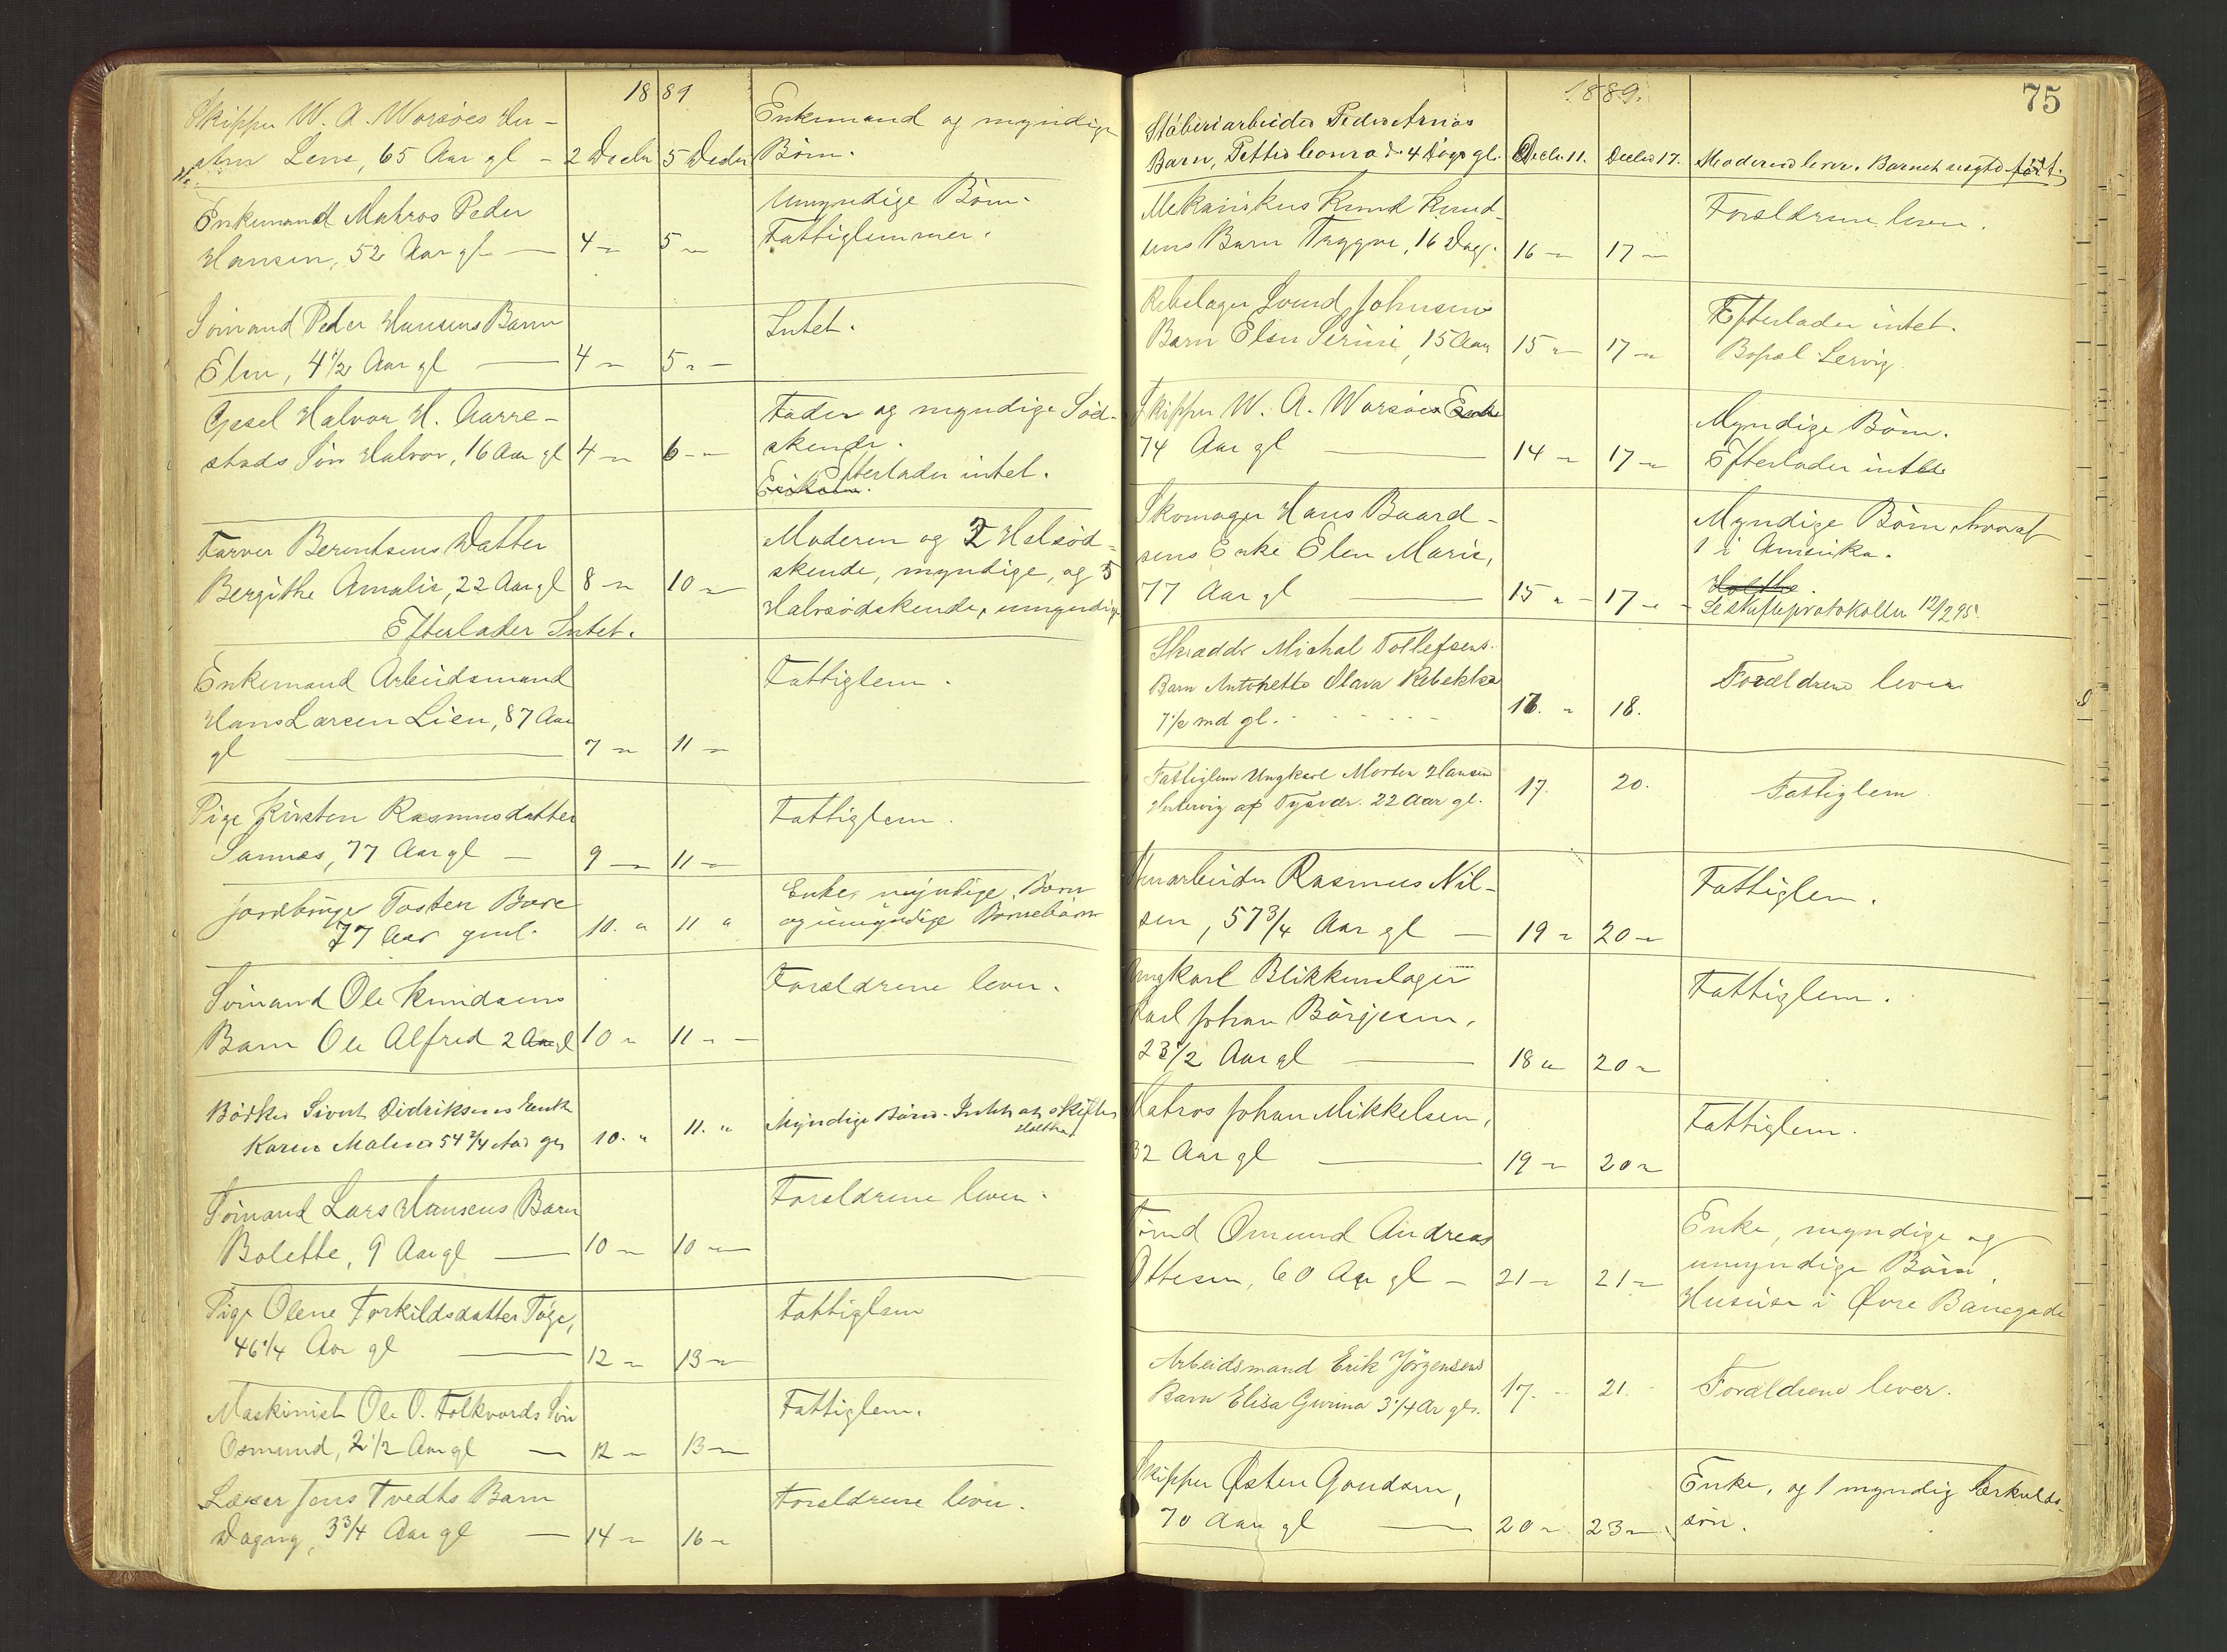 1889
Skipper W. A. Worsøes Hu-
stru Lene, 65 Aar gl - 2 Decbr 5 Decbr
Enkemand og myndige
Børn.
Enkemand Matros Peder
Hansen, 52 Aar gl — 4 " 5 "
Umyndige Børn.
Fattiglemmer.
Sømand Peder Hansens Barn
Elen, 4 1/2 Aar gl — 4 " 5 " -
Intet.
Gesel Halvor H. Aarre-
stads Søn Halvor, 16 Aar gl 4 " 6 - "
Fader og myndige Sød-
skende.
Efterlader intet.
Farver Berentsens Datter
Bergithe Amalie, 22 Aar gl 8 " 10 "
Efterlader Intet.
Moderen og 2 Helsød-
skende, myndige, og 5
Halvsødskende, umyndige
Enkemand Arbeidsmand
Hans Larsen Lien, 87 Aar
gl — 7 " 11 "
Fattiglem.
Pige Kirsten Rasmusdatter
Sannes, 77 Aar gl — 9 " 11 "
Fattiglem.
Jordbruger Tosten Bore
77 Aar gml. 10. " 11 "
Enke, myndige Børn
og umyndige Børnebørn
Sømand Ole Knudsens
Barn Ole Alfred 2 Aar gl 10 " 11 " -
Forældrene lever.
Bødker Sivert Didriksens Enke
Karen Malene 54 2/4 Aar gl 10. " 11. "
Myndige Børn. Intet at skifte
Holthe
Sømand Lars Hansens Barn
Bolette, 9 Aar gl — 10 " 10 "
Forældrene lever.
Pige Olene Torkildsdatter Tøge,
46 1/4 Aar gl — 12 " 13 "
Fattiglem
Maskinist Ole O. Folkvords Søn
Osmund, 2 1/2 Aar gl — 12 " 13 "
Fattiglem.
Læser Jens Tvedts Barn
Dagny, 3 3/4 Aar gl — 14 " 16 "
Forældrene lever.
75
1889.
Støberiarbeider Peder Arnøs
Barn, Petter Conrad 4 Døgn gl. Decbr 11. Decbr 17. Moderen lever. Barnet uægte født.
Mekanikus Knud Knud-
sens Barn Tryggve, 16 Dage. 16 " 17 "
Forældrene lever.
Rebslager Svend Johnsens
Barn Elen Serine, 15 Aar 15 " 17 "
Efterlader intet.
Bopæl Lervig
Skipper W. A. Worsøes Enke
74 Aar gl — 14 " 17 "
Myndige Børn.
Efterlader intet
Skomager Hans Baard-
sens Enke Elen Marie,
77 Aar gl — 15 " - 17 "
Myndige Børn hvoraf
1 i Amerika.
Holthe.
Se skifteprotokollen 12/2 95.
Skrædder Michal Tollefsens
Barn Antonette Olava Rebekka
7 1/2 md gl. - - - - 16. " 18.
Forældrene lever
Fattiglem Ungkarl Morten Hansen
Hertervig af Tysvær. 22 Aar gl. 17. 20.
Fattiglem
Stenarbeider Rasmus Nil-
sen, 57 3/4 Aar gl — 19 " 20 "
Fattiglem.
Ungkarl Blikkenslager
Karl Johan Börjesen,
23 1/2 Aar gl — 18 " 20 "
Fattiglem.
Matros Johan Mikkelsen,
32 Aar gl — 19 " 20 "
Fattiglem.
Tømd Omund Andreas
Ottesen, 60 Aar gl — 21 " 21 "
Enke, myndige og
umyndige Børn.
Huseier i Øvre Banegade
Arbeidsmand Erik Jørgensens
Barn Elisa Gurina 3 1/4 Ar gl. 17. " 21.
Forældrene lever.
Skipper Østen Gaudsen,
70 Aar gl — 20 " 23 "
Enke, og 1 myndig Særkulds-
søn.